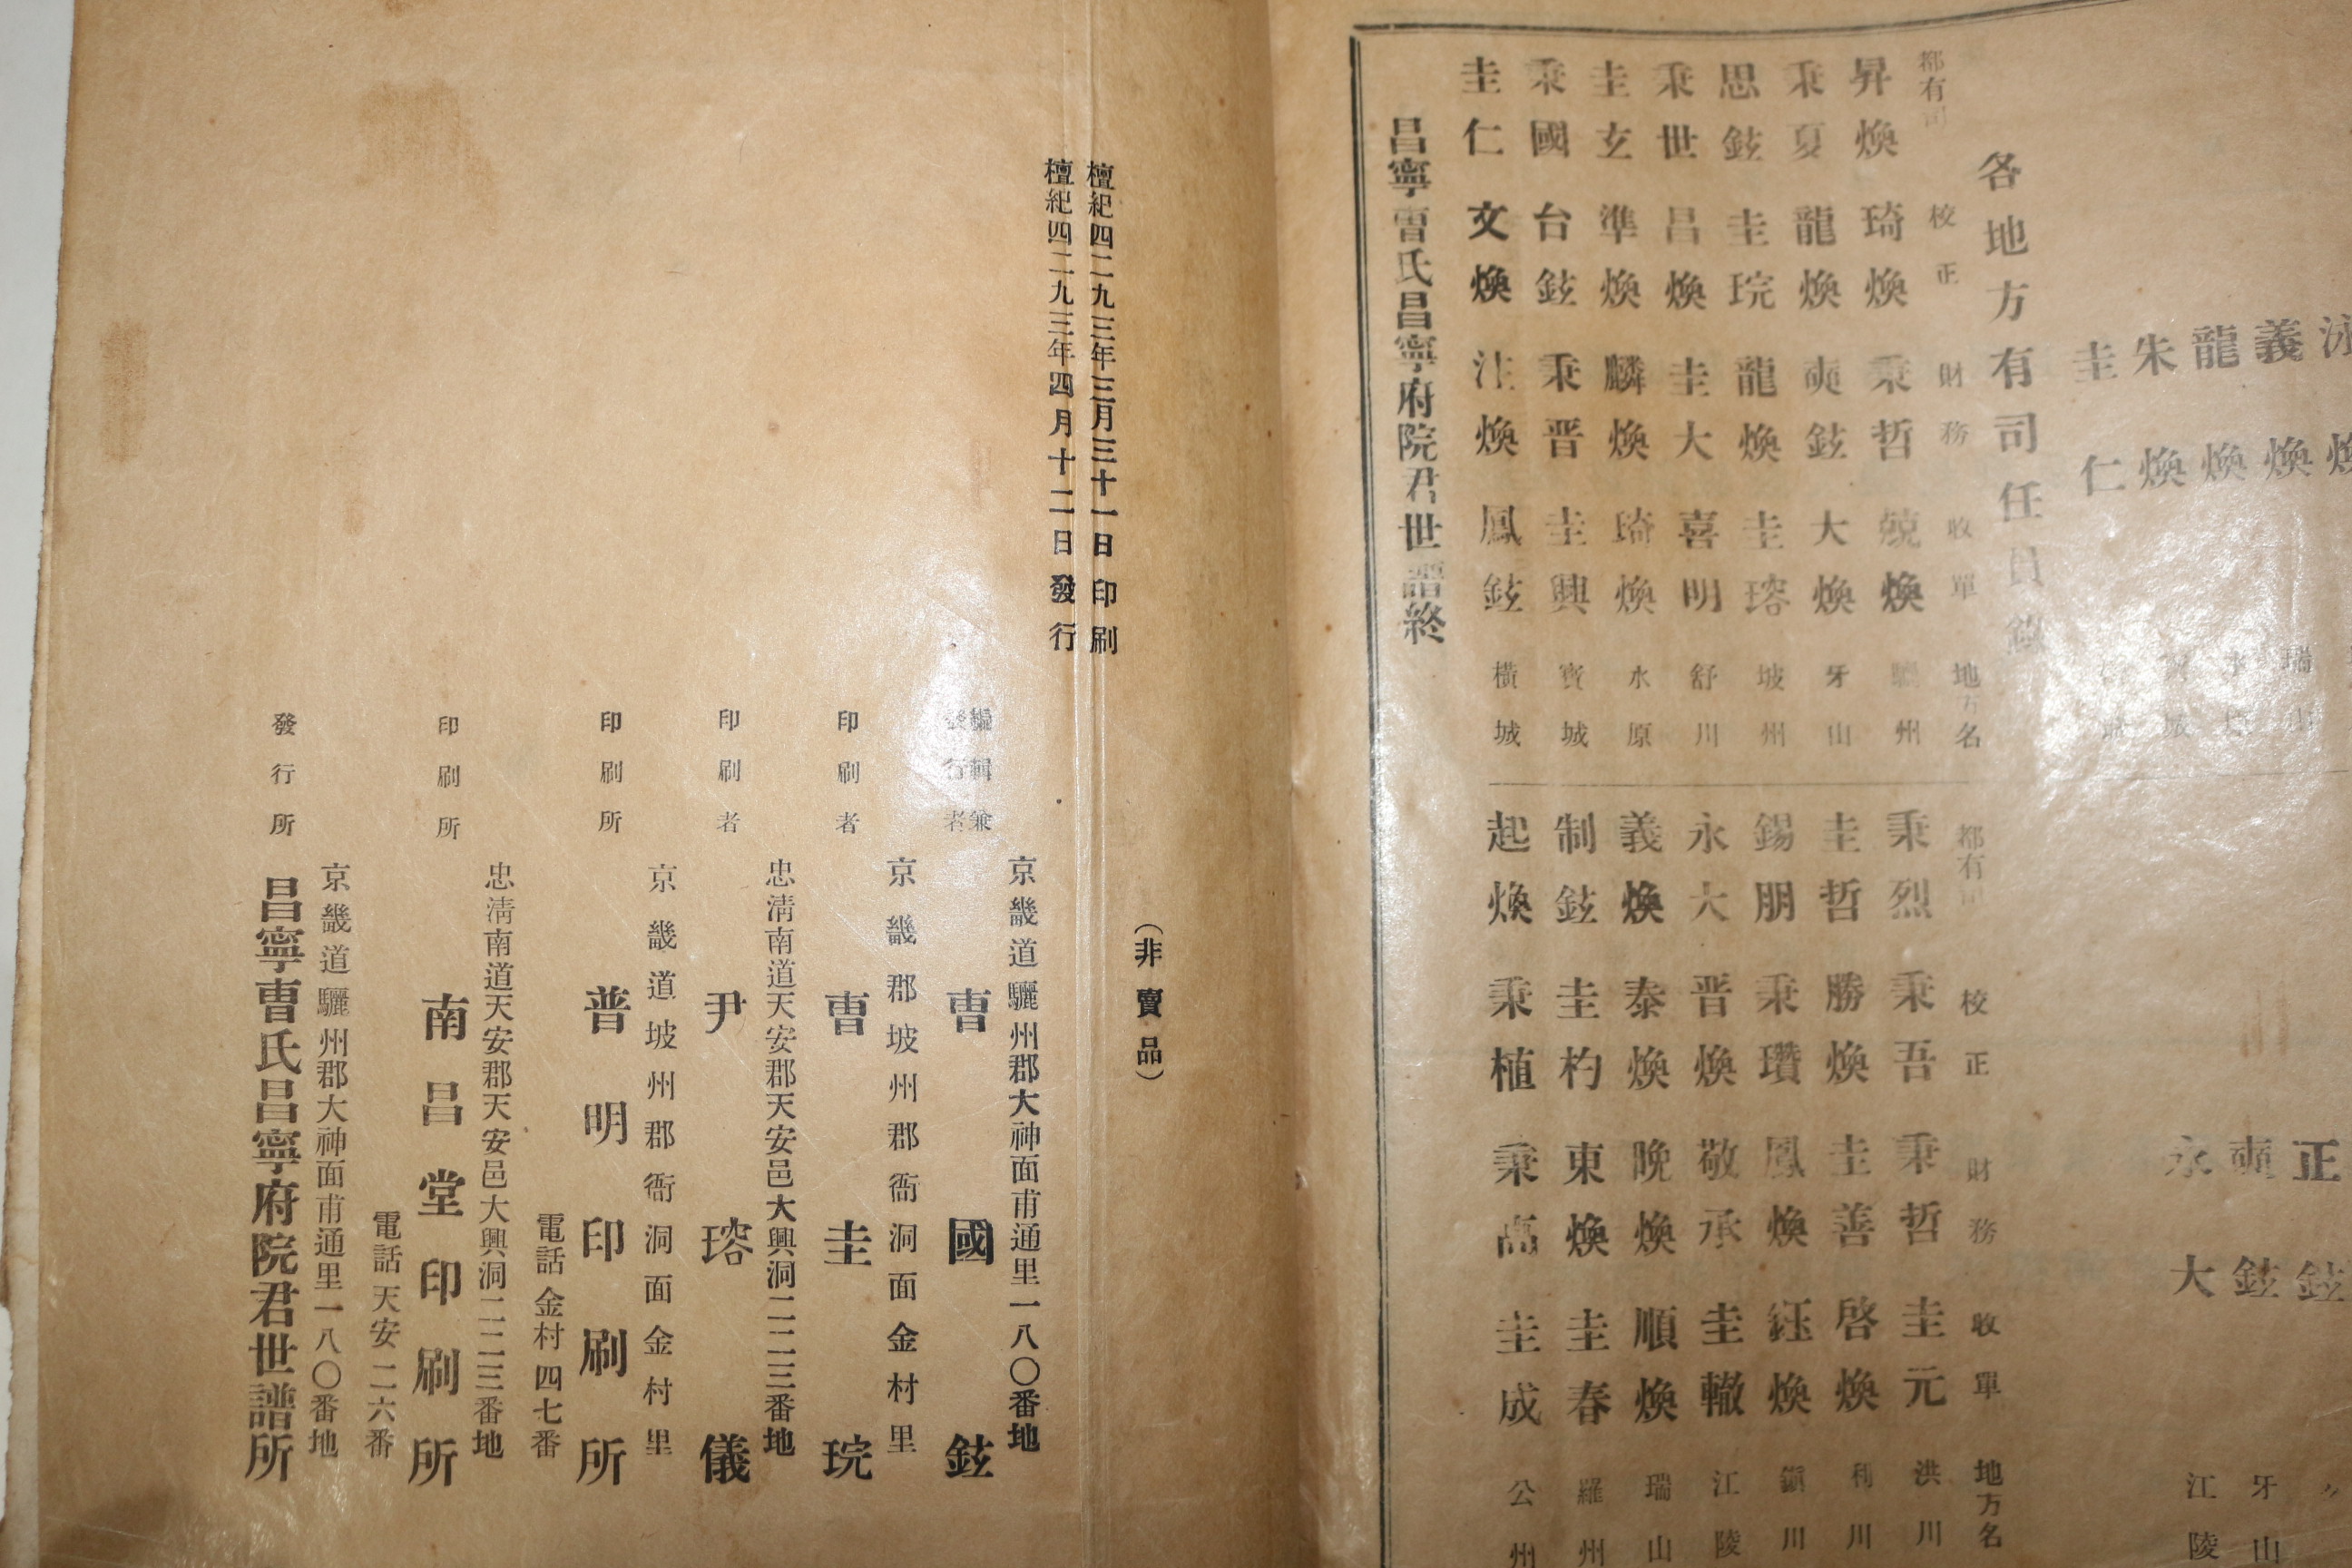 泳
義煥
龍煥
朱煥
圭仁
瑞山
正鉉
奭鉉 牙山
永大 江陵
各地方有司任員錄
都有司 校正 財務 收單 地方名
昇煥 琦煥 秉哲 煥 州
秉夏 龍煥 奭鉉 大煥 牙山
思鉉 圭琓 龍煥 圭瑢 坡州
秉世 昌煥 圭大 喜明 舒川
圭玄 準煥 麟煥 琦煥 水原
秉國 台鉉 秉晋 圭興 寶城
圭仁 文煥 注煥 鳳鉉 橫城
都有司 校正 財務 收單 地方名
秉烈 秉吾 秉哲 圭元 洪川
圭哲 勝煥 圭善 啓煥 利川
錫朋 秉瓚 鳳煥 鈺煥 川
永大 晋煥 敬承 圭轍 江陵
義煥 泰煥 晩煥 順煥 瑞山
制鉉 圭杓 東煥 圭春 羅州
起煥 秉植 秉高 圭成 公州
昌寧曺氏昌寧府院君世譜終
(非賣品)
檀紀四二九三年三月三十一日印刷
檀紀四二九三年四月十二日發行
京畿道驪州郡大神面甫通里一八〇番地
編輯兼
發行者 曺國鉉
京畿郡坡州郡衙洞面金村里
印刷者 曺圭琓
忠淸南道天安郡天安邑大興洞二二三番地
印刷者 尹瑢儀
京畿道坡州郡衙洞面金村里
印刷所 普明印刷所
電話金村四七番
忠淸南道天安郡天安邑大興洞二二三番地
印刷所 南昌堂印刷所
電話天安二六番
京畿道驪州郡大神面甫通里一八〇番地
發行所 昌寧曺氏昌寧府院君世譜所